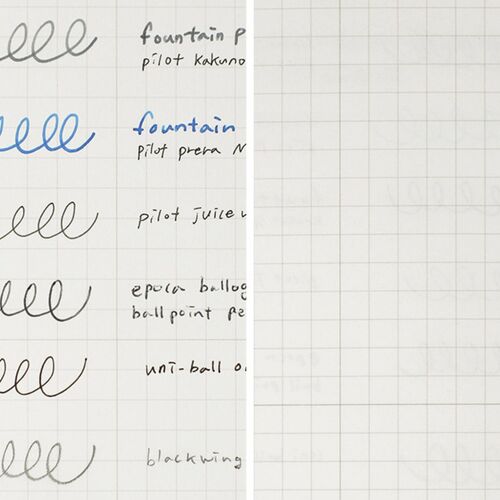 fountain p
pilot kakuno
fountain
pilot prera
pilot juice
epoca ballog
ballpoint pe
uni-ball
blackwing